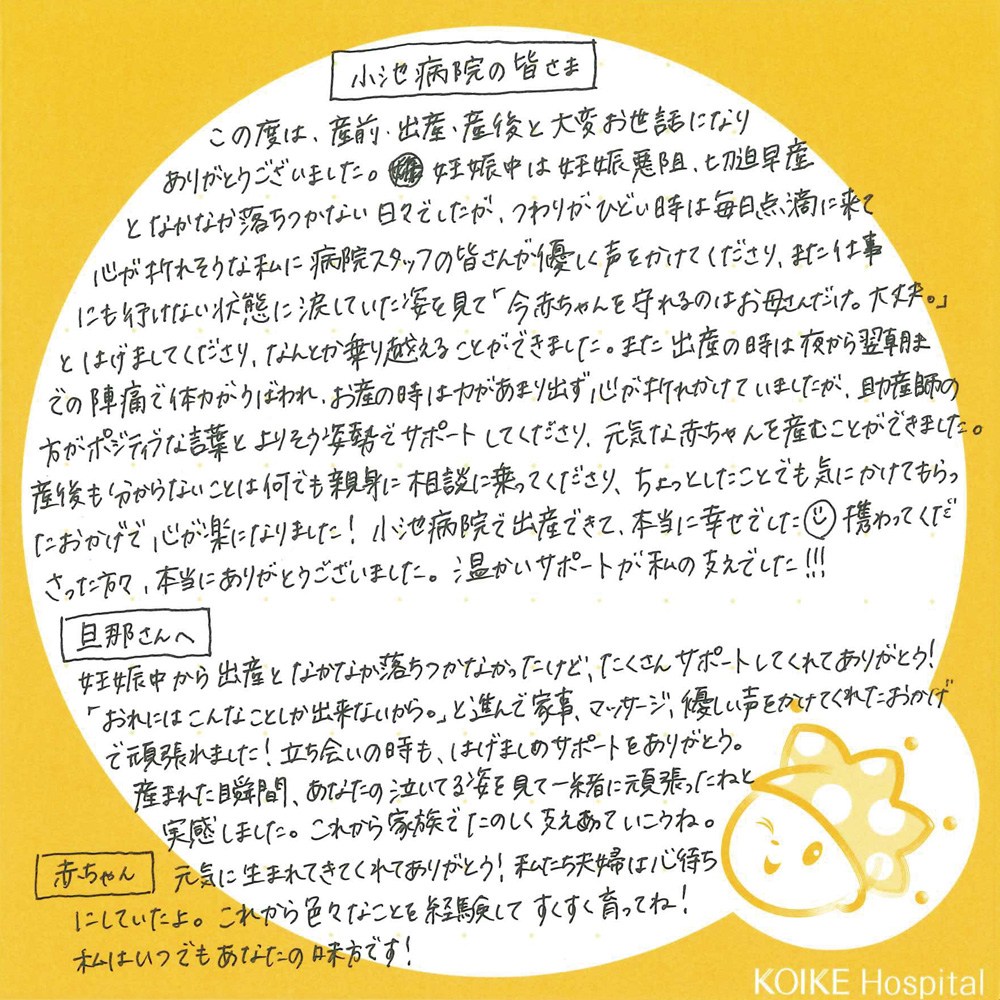 小池病院の皆さま
この度は、産前・出産・産後と大変お世話になり
ありがとうございました。妊娠中は妊娠悪阻、切迫早産
となかなか落ちつかない日々でしたが、つわりがひどい時は毎日点滴に来て
心が折れそうな私に病院スタッフの皆さんが優しく声をかけてくださり、また仕事
にも行けない状態に涙していた姿を見て「今赤ちゃんを守れるのはお母さんだけ。大丈夫。」
とはげましてくださり、なんとか乗り越えることができました。また出産の時は夜から翌朝ま
での陣痛で体力がうばわれ、お産の時は力があまり出ず心が折れかけていましたが、助産師の
方がポジティブな言葉とよりそう姿勢でサポートしてくださり、元気な赤ちゃんを産むことができました。
産後も分からないことは何でも親身に相談に乗ってくださり、ちょっとしたことでも気にかけてもらっ
たおかげで心が楽になりました！小池病院で出産できて、本当に幸せでした☺携わってくだ
さった方々、本当にありがとうございました。温かいサポートが私の支えでした!!!
旦那さんへ
妊娠中から出産となかなか落ちつかなかったけど、たくさんサポートしてくれてありがとう！
「おれにはこんなことしか出来ないから。」と進んで家事、マッサージ、優しい声をかけてくれたおかげ
で頑張れました！立ち会いの時も、はげましめサポートをありがとう。
産まれた瞬間、あなたの泣いてる姿を見て一緒に頑張ったねと
実感しました。これから家族でたのしく支えあっていこうね。
赤ちゃん 元気に生まれてきてくれてありがとう！私たち夫婦は心待ち
にしていたよ。これから色々なことを経験してすくすく育ってね！
私はいつでもあなたの味方です！
KOIKE Hospital